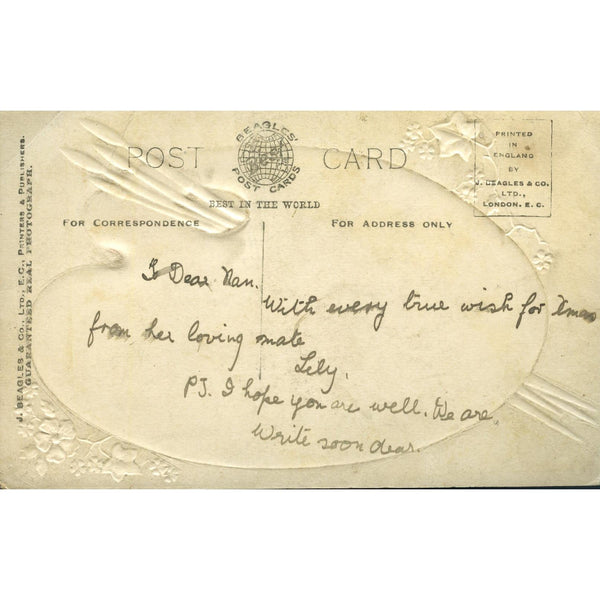 POST CARD
BEAGLES' POST CARDS
BEST IN THE WORLD
FOR CORRESPONDENCE
FOR ADDRESS ONLY
PRINTED
IN
ENGLAND
BY
J. BEAGLES & CO.
LTD.,
LONDON. E. C.
J. BEAGLES & CO., LTD., E.C., PRINTERS & PUBLISHERS.
GUARANTEED REAL PHOTOGRAPH.
To Dear Nan.
With every true wish for Xmas
from her loving mate
Lily.
PS. I hope you are well. We are
Write soon dear.